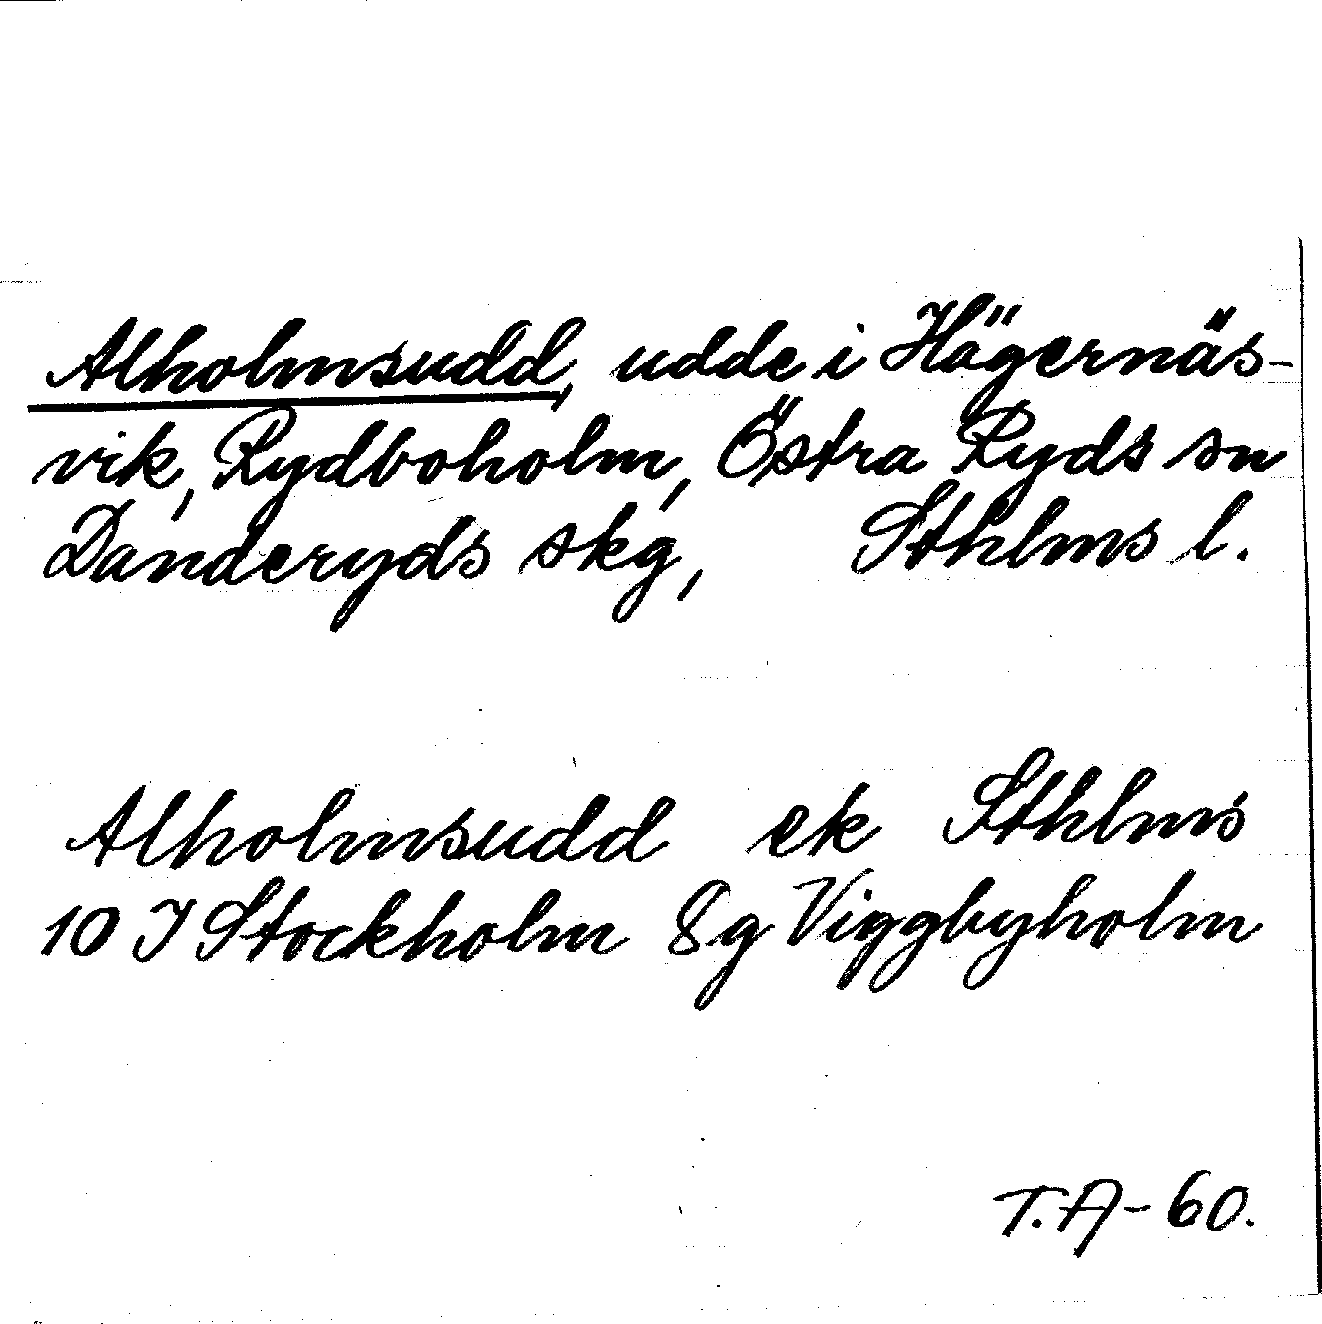 Alholmsudd, udde i Hägernäs-
vik, Rydboholm, Östra Ryds sn
Danderyds skg, Sthlms l.
Alholmsudd ek Sthlms
10 I Stockholm 8g Viggbyholm
T.A-60.